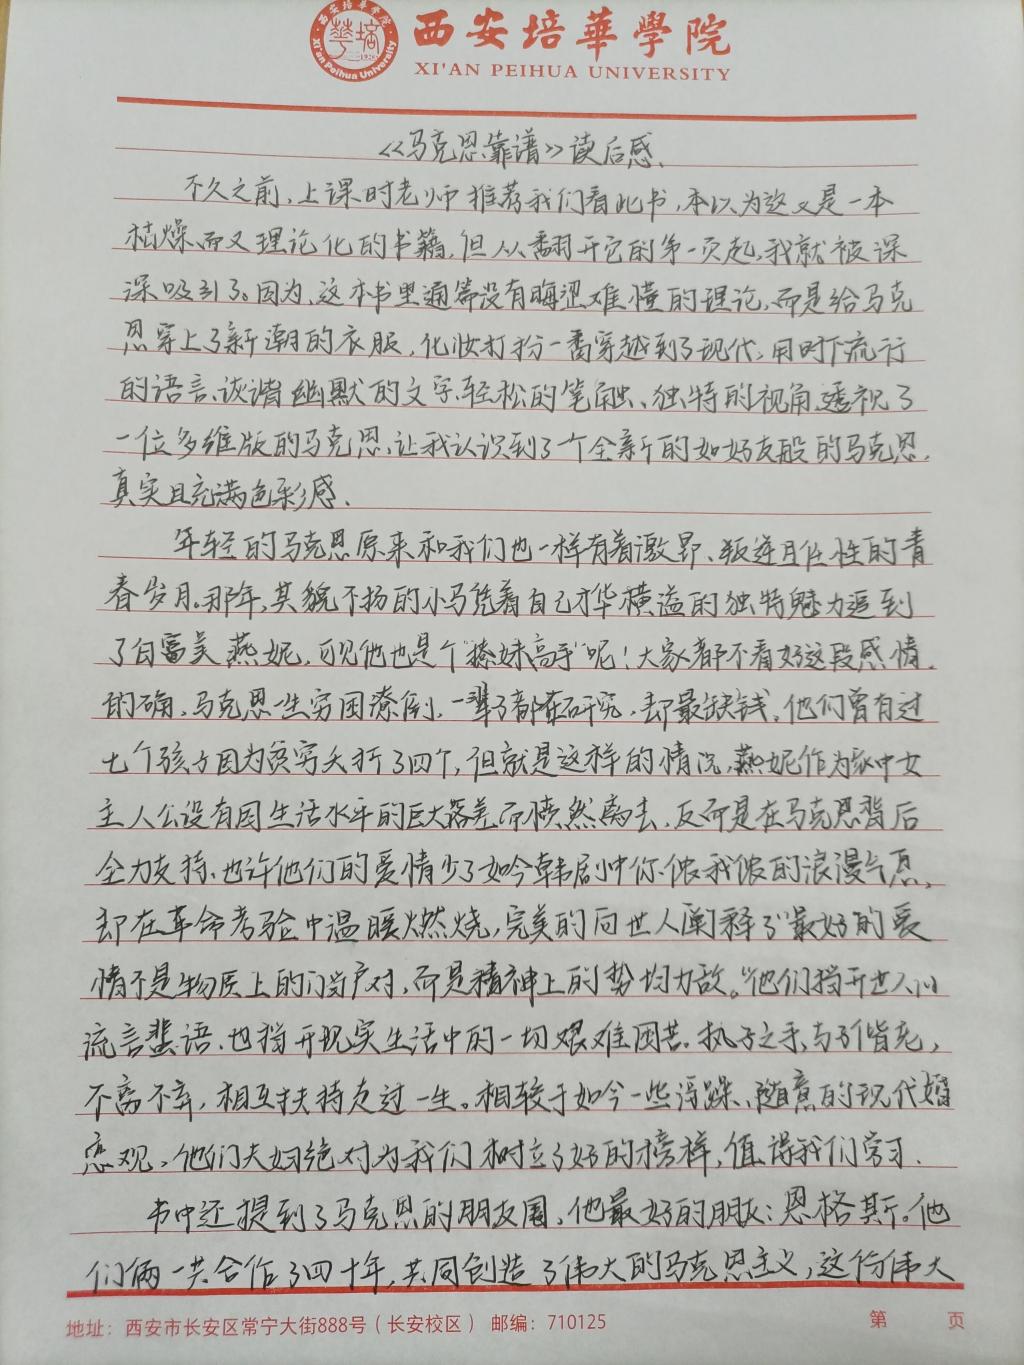 西安培華學院
XI'AN PEIHUA UNIVERSITY
《马克恩靠谱》读后感、
不久之前、上课时老师推荐我们看此书,本以为这又是一本
枯燥而又理论化的书籍,但从翻开它的第一页起,我就被深
深吸引了。因为、这本书里通篇没有晦涩难懂的理论,而是给马克
恩穿上了新潮的衣服,化妆打扮一番穿越到了现代,用时下流行
的语言、诙谐幽默的文字、轻松的笔触、独特的视角、透视了
一位多维版的马克思,让我认识到了一个全新的如好友般的马克恩,
真实且充满色彩感、
年轻的马克恩原来和我们也一样有着激昂、叛逆且任性的青
春岁月。那年,其貌不扬的小马凭着自己才华横溢的独特魅力追到
了白富美燕妮,可见他也是个"撩妹高手"呢!大家都不看好这段感情,
的确,马克恩一生穷困潦倒,一辈子都在研究,却最缺钱。他们曾有过
七个孩子因为贫穷夭折了四个,但就是这样的情况,燕妮作为家中女
主人公没有因生活水平的巨大落差而愤然离去,反而是在马克恩背后
全力支持、也许他们的爱情少了如今韩剧中你侬我侬的浪漫气息,
却在革命考验中温暖燃烧,完美的向世人阐释了"最好的爱
情不是物质上的门当户对,而是精神上的势均力敌。"他们挡开世人的
流言蜚语、也挡开现实生活中的一切艰难困苦。执子之手,与子偕老,
不离不弃,相互扶持走过一生。相较于如今一些浮躁、随意的现代婚
恋观,他们夫妇绝对为我们树立了好的榜样,值得我们学习.
书中还提到了马克恩的朋友圈,他最好的朋友:恩格斯。他
们俩一共合作了四十年,共同创造了伟大的马克思主义,这份伟大
地址:西安市长安区常宁大街888号(长安校区) 邮编:710125 第 页